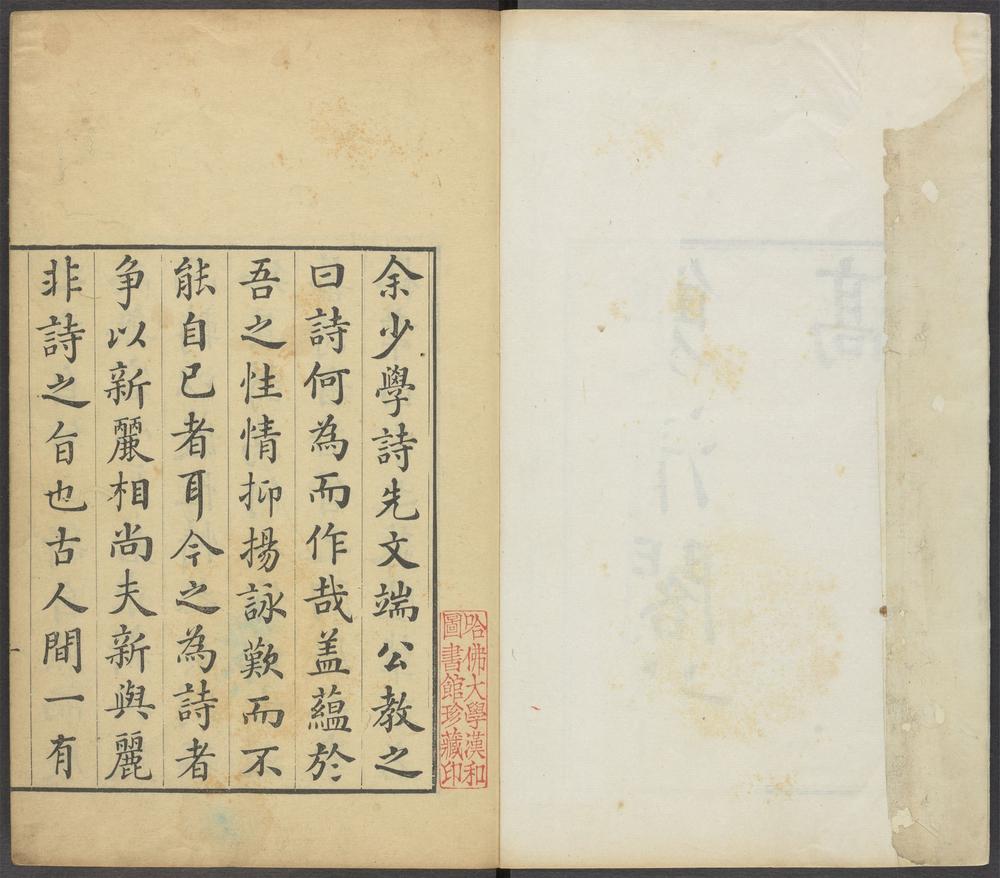 高
余少學詩先文端公教之
曰詩何為而作哉盖蘊於
吾之性情抑揚詠歎而不
能自已者耳今之為詩者
爭以新麗相尚夫新與麗
非詩之旨也古人間一有
哈佛大學漢和
圖書館珍藏印